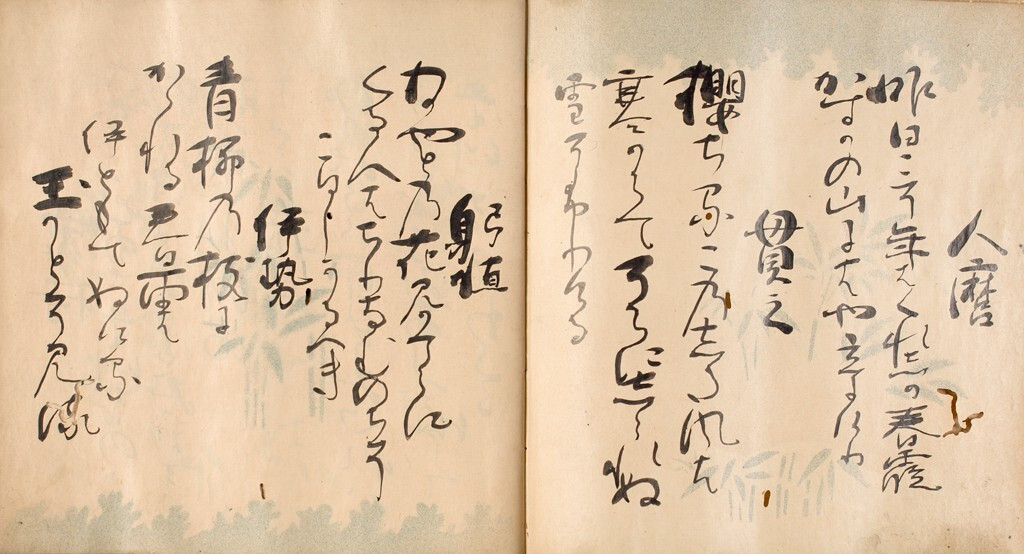 人麿
昨日こそ年はくれしか春霞
かすかの山にはや立にけり
貫之
櫻ちるこのした風は
寒からてそらにしられぬ
雪そふりける
躬恒
わかやとの花見かてらに
くる人はちりなむのちそ
こひしかるへき
伊勢
青柳乃枝に
かゝれる春雨は
伊ともてぬける
玉かとそ見流